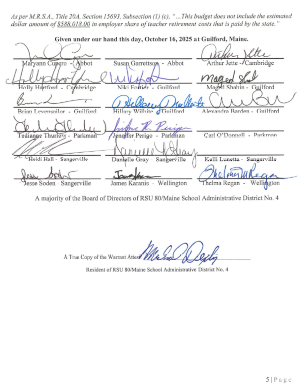 As per M.R.S.A., Title 20A, Section 15693, Subsection (1) (c), "...This budget does not include the estimated
dollar amount of $586,018.00 in employer share of teacher retirement costs that is paid by the state."
Given under our hand this day, October 16, 2025 at Guilford, Maine.
Maryann Cutero - Abbot Susan Garrettson - Abbot Arthur Jette - Cambridge
Holly Hartford - Cambridge Niki Fortier - Guilford Maged Shahin - Guilford
Brian Levensailor - Guilford Hillary Wiltse - Guilford Alexandra Barden - Guilford
Tedianne Tharley - Parkman Jennifer Perigo - Parkman Carl O'Donnell - Parkman
Heidi Hall - Sangerville Danielle Gray - Sangerville Kelli Lunetta - Sangerville
Jesse Soden - Sangerville James Karantis - Wellington Thelma Regan - Wellington
A majority of the Board of Directors of RSU 80/Maine School Administrative District No. 4
A True Copy of the Warrant Attest
Resident of RSU 80/Maine School Administrative District No. 4
5 | Page